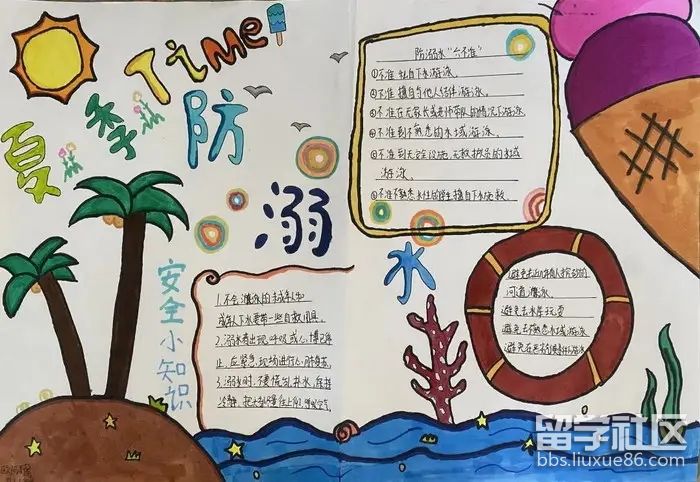 夏季
Time
防溺水
防溺水"六不准"
①不准私自下水游泳。
②不准擅自与他人结伴游泳。
③不准在无家长或老师带队的情况下游泳。
④不准到不熟悉的水域游泳。
⑤不准到无安全设施、无救护员的水域
游泳。
⑥不准不熟悉水性的学生擅自下水施救。
安全小知识
1.不会游泳的
下水要带一些自救用具。
2.溺水者出现呼吸或心
止,应紧急现场进行心肺复苏。
3.溺水时,不要慌乱扎水,保持
冷静,
避免去
河道游泳。
避免去水库玩耍
避免去不熟悉水域游泳
避免在
留学社区
bbs.liuxue86.com